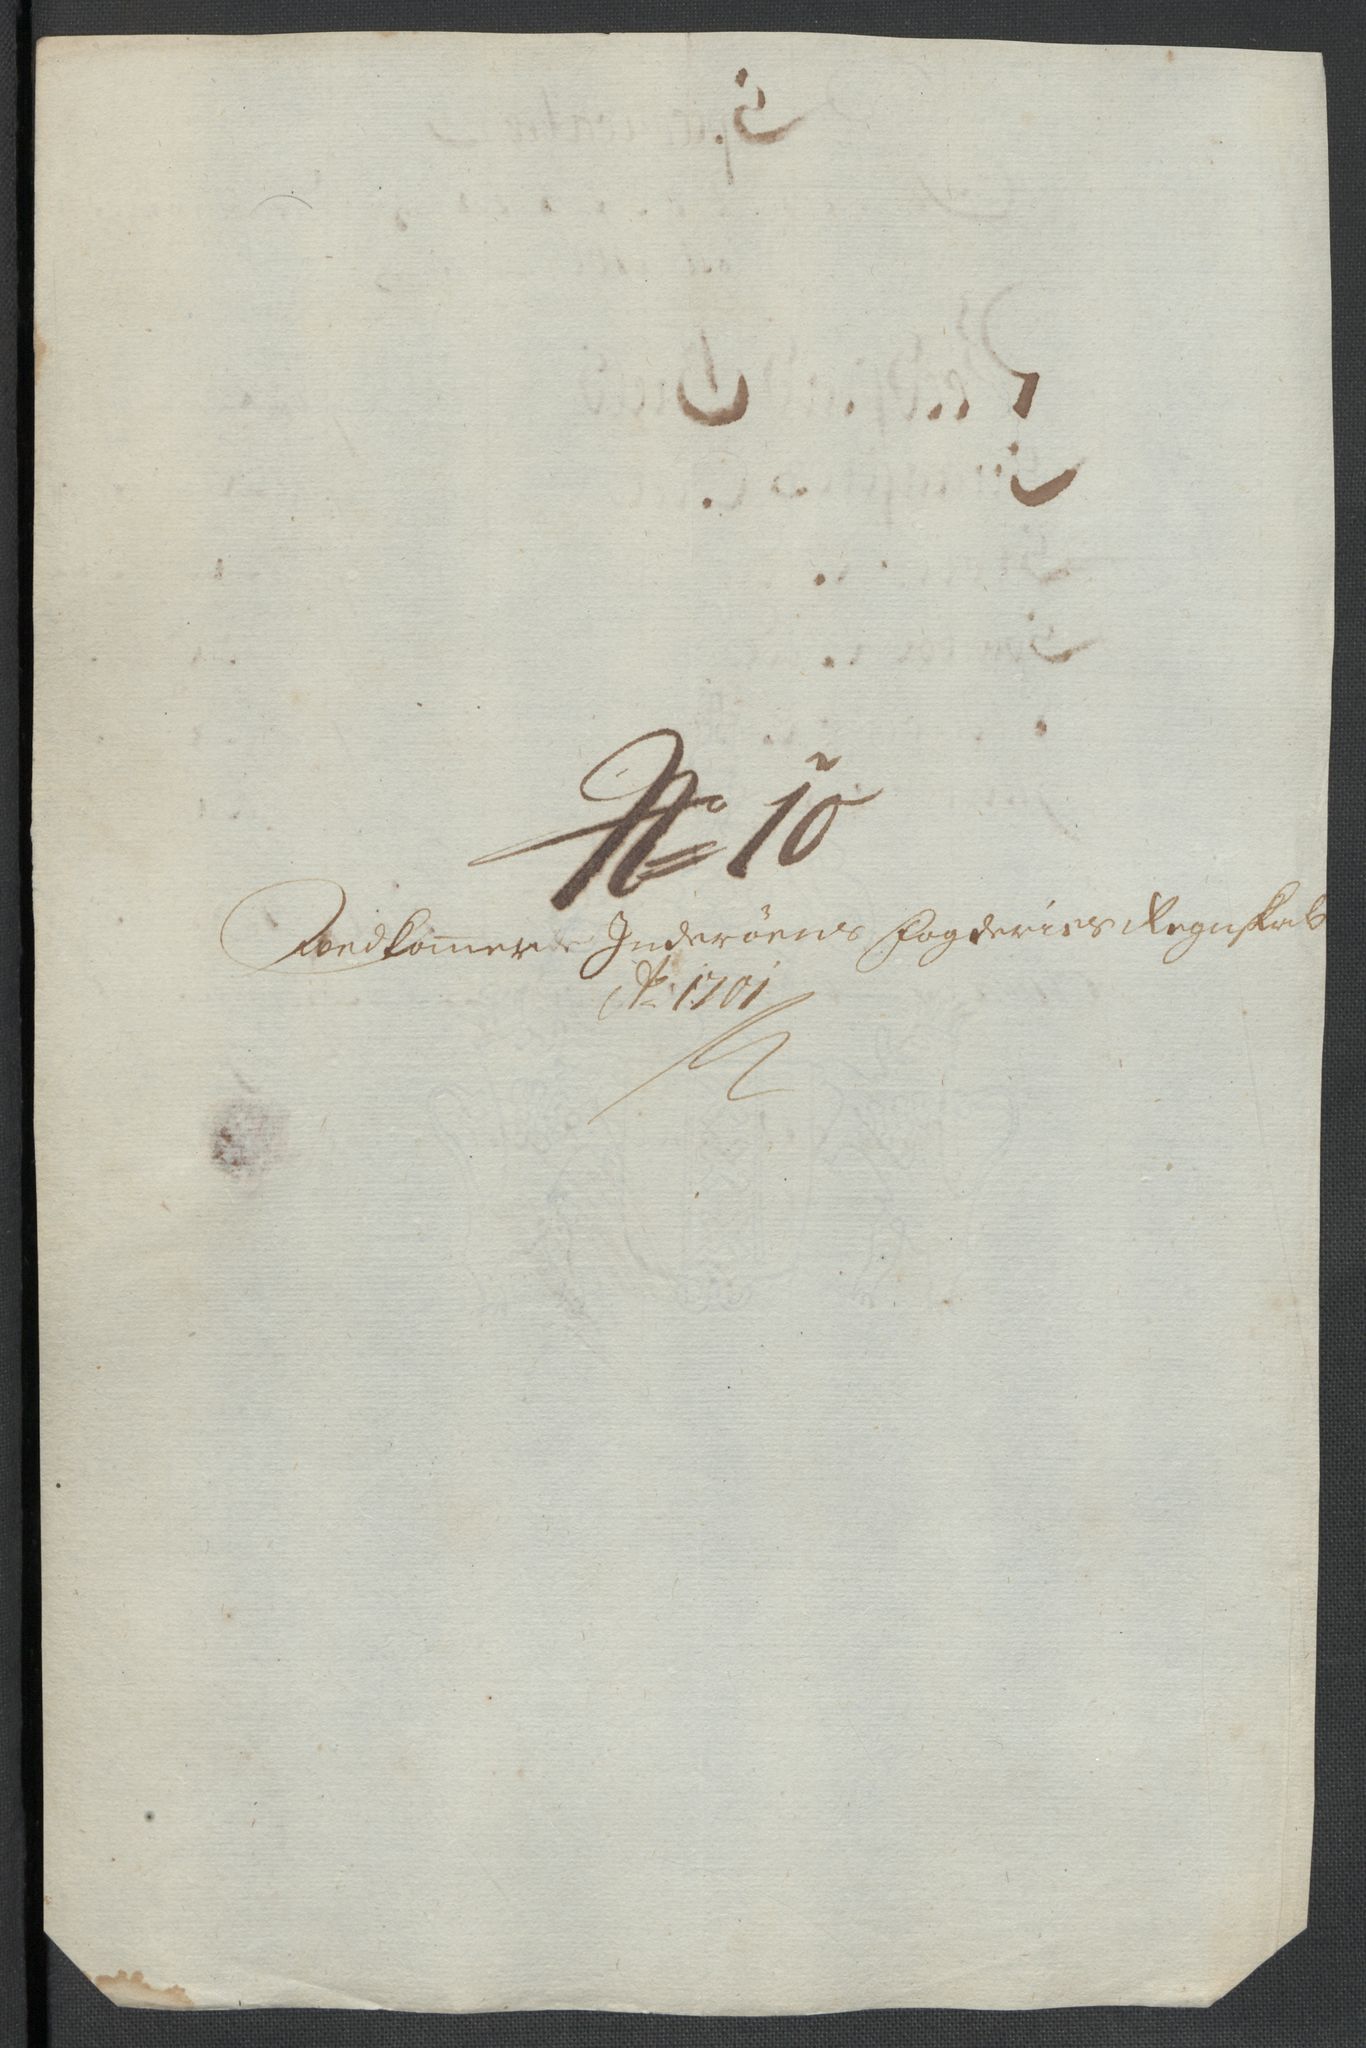 No 10
Vedkommer Inderöens Fogderies Regnskab
Ao 1701